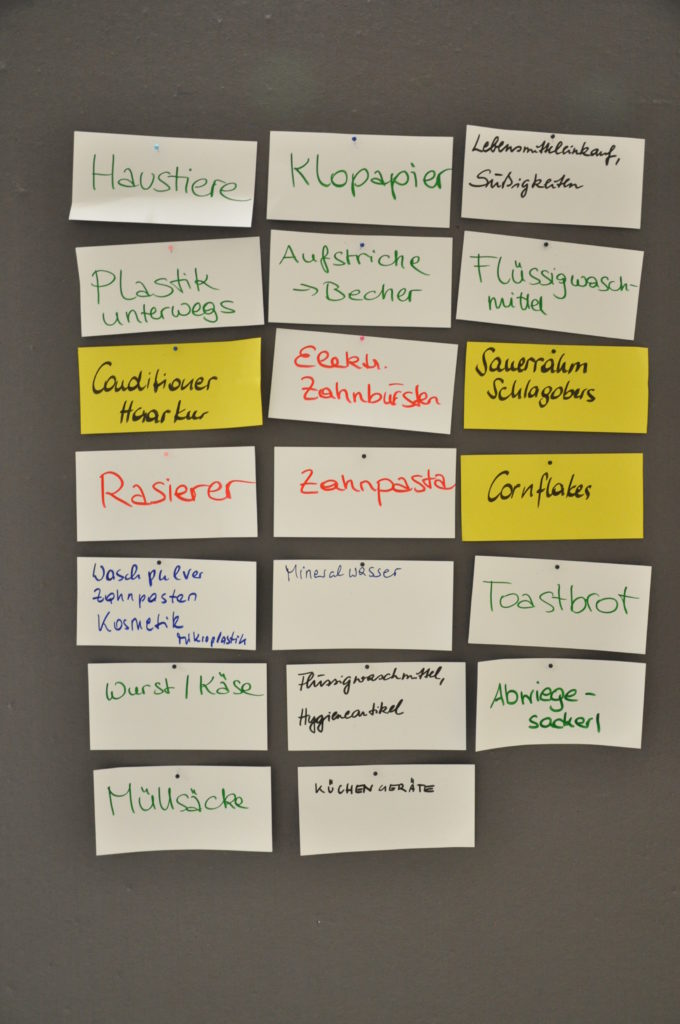 Haustiere
Klopapier
Lebensmitteleinkauf,
Süßigkeiten
Plastik
unterwegs
Aufstriche
→ Becher
Flüssigwasch-
mittel
Conditioner
Haarkur
Elektr.
Zahnbürsten
Sauerrahm
Schlagobers
Rasierer
Zahnpasta
Cornflakes
Waschpulver
Zahnpasten
Kosmetik
Mikroplastik
Mineralwässer
Toastbrot
Wurst / Käse
Flüssigwaschmittel,
Hygieneartikel
Abwiege-
sackerl
Müllsäcke
KÜCHENGERÄTE